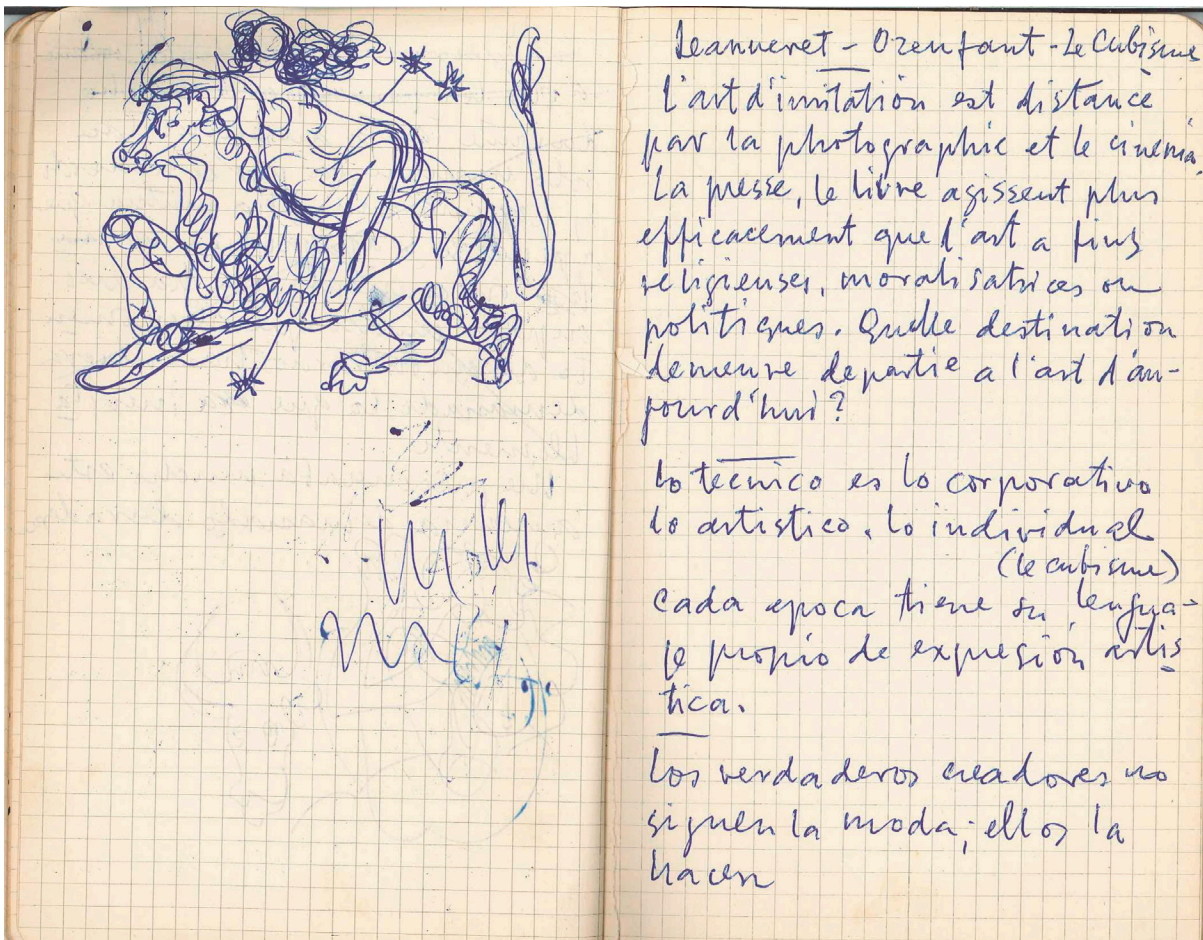 Jeanneret - Ozenfant - Le Cubisme
L'art d'imitation est distancé
par la photographie et le cinéma.
La presse, le livre agissent plus
efficacement que l'art a fins
religieuses, moralisatrices ou
politiques. Quelle destination
demeure departie a l'art d'au-
jourd'hui?
Lo técnico es lo corporativo
lo artistico. lo individual
(le cubisme)
cada epoca tiene su lengua-
je propio de expresión artis
tica.
Los verdaderos creadores no
siguen la moda; ellos la
hacen